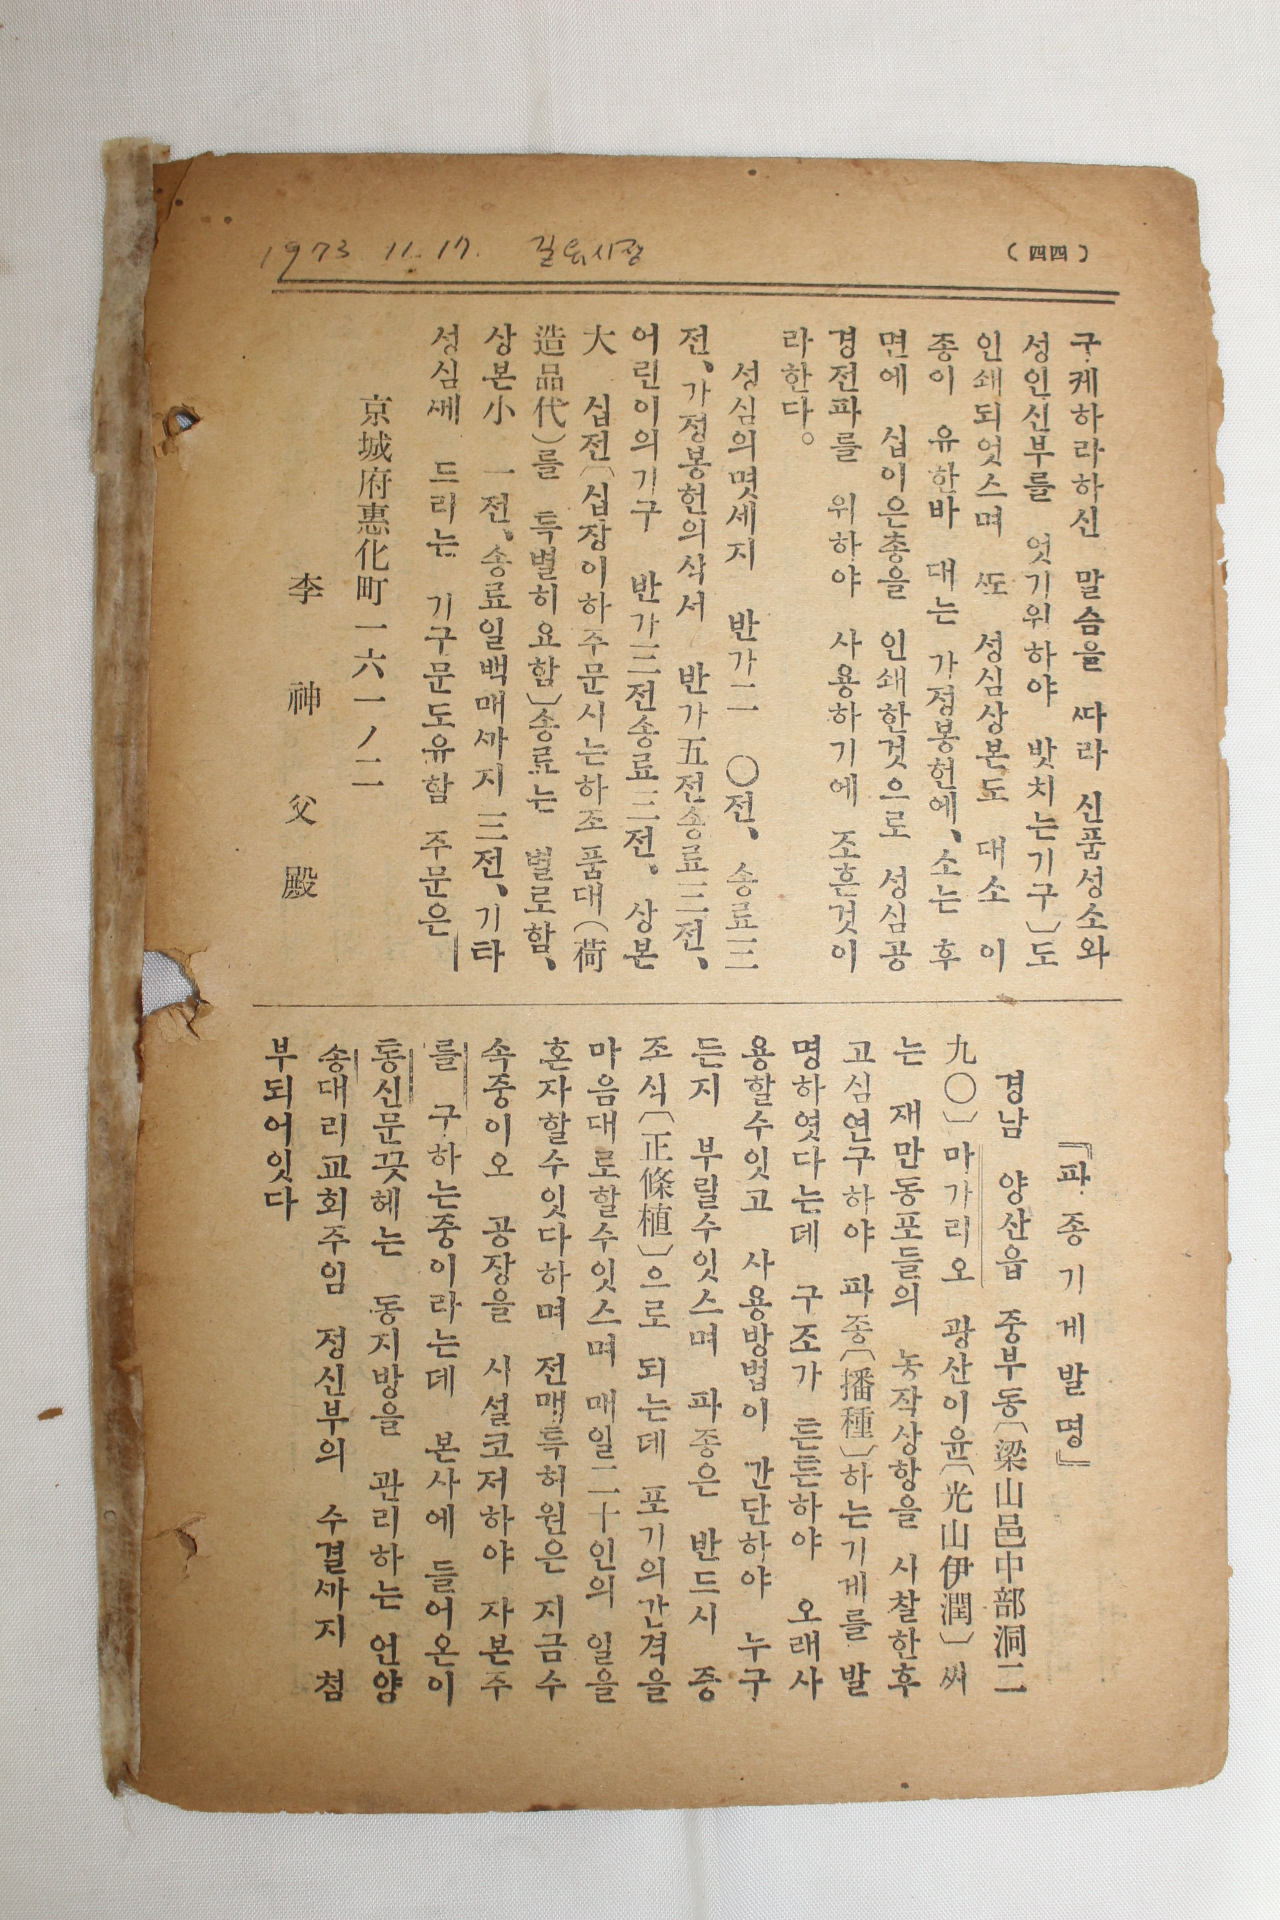 (四四)
1973 11. 17.
구케하라하신 말슴을 ᄯᅡ라 신품성소와
성인신부를 엇기위하야 밧치는기구〕도
인쇄되엇스며 ᄯᅩ 성심상본도 대소 이
종이 유한바 대는 가정봉헌에、소는 후
면에 십이은총을 인쇄한것으로 성심공
경전파를 위하야 사용하기에 조흔것이
라한다。
성심의몃세지 반가二 〇전、송료三
전、가정봉헌의삭서 반가五전송료三전、
어린이의기구 반가三전송료三전、상본
大 십전〔십장이하주문시는하조품대(荷
造品代)를 특별히요함〕송료는 별로함、
상본小 一전、송료일백매ᄭᅡ지 三전、기타
성심ᄭᅦ 드리는 기구문도유함 주문은―
京城府惠化町一六一ノ二
李 神父殿
『파종기게발명』
경남 양산읍 중부동〔梁山邑中部洞二
九〇〕마가리오 광산이윤〔光山伊潤〕씨
는 재만동포들의 농작상항을 사찰한후
고심연구하야 파종〔播種〕하는기게를 발
명하엿다는데 구조가 튼튼하야 오래사
용할수잇고 사용방법이 간단하야 누구
든지 부릴수잇스며 파종은 반드시 중
조식〔正條植〕으로 되는데 포기의간격을
마음대로할수잇스며 매일二十인의 일을
혼자할수잇다하며 전매특허원은 지금수
속중이오 공장을 시설코저하야 자본주
를 구하는중이라는데 본사에 들어온이
통신문끗헤는 동지방을 관리하는 언양
송대리교회주임 정신부의 수결ᄭᅡ지 첨
부되어잇다